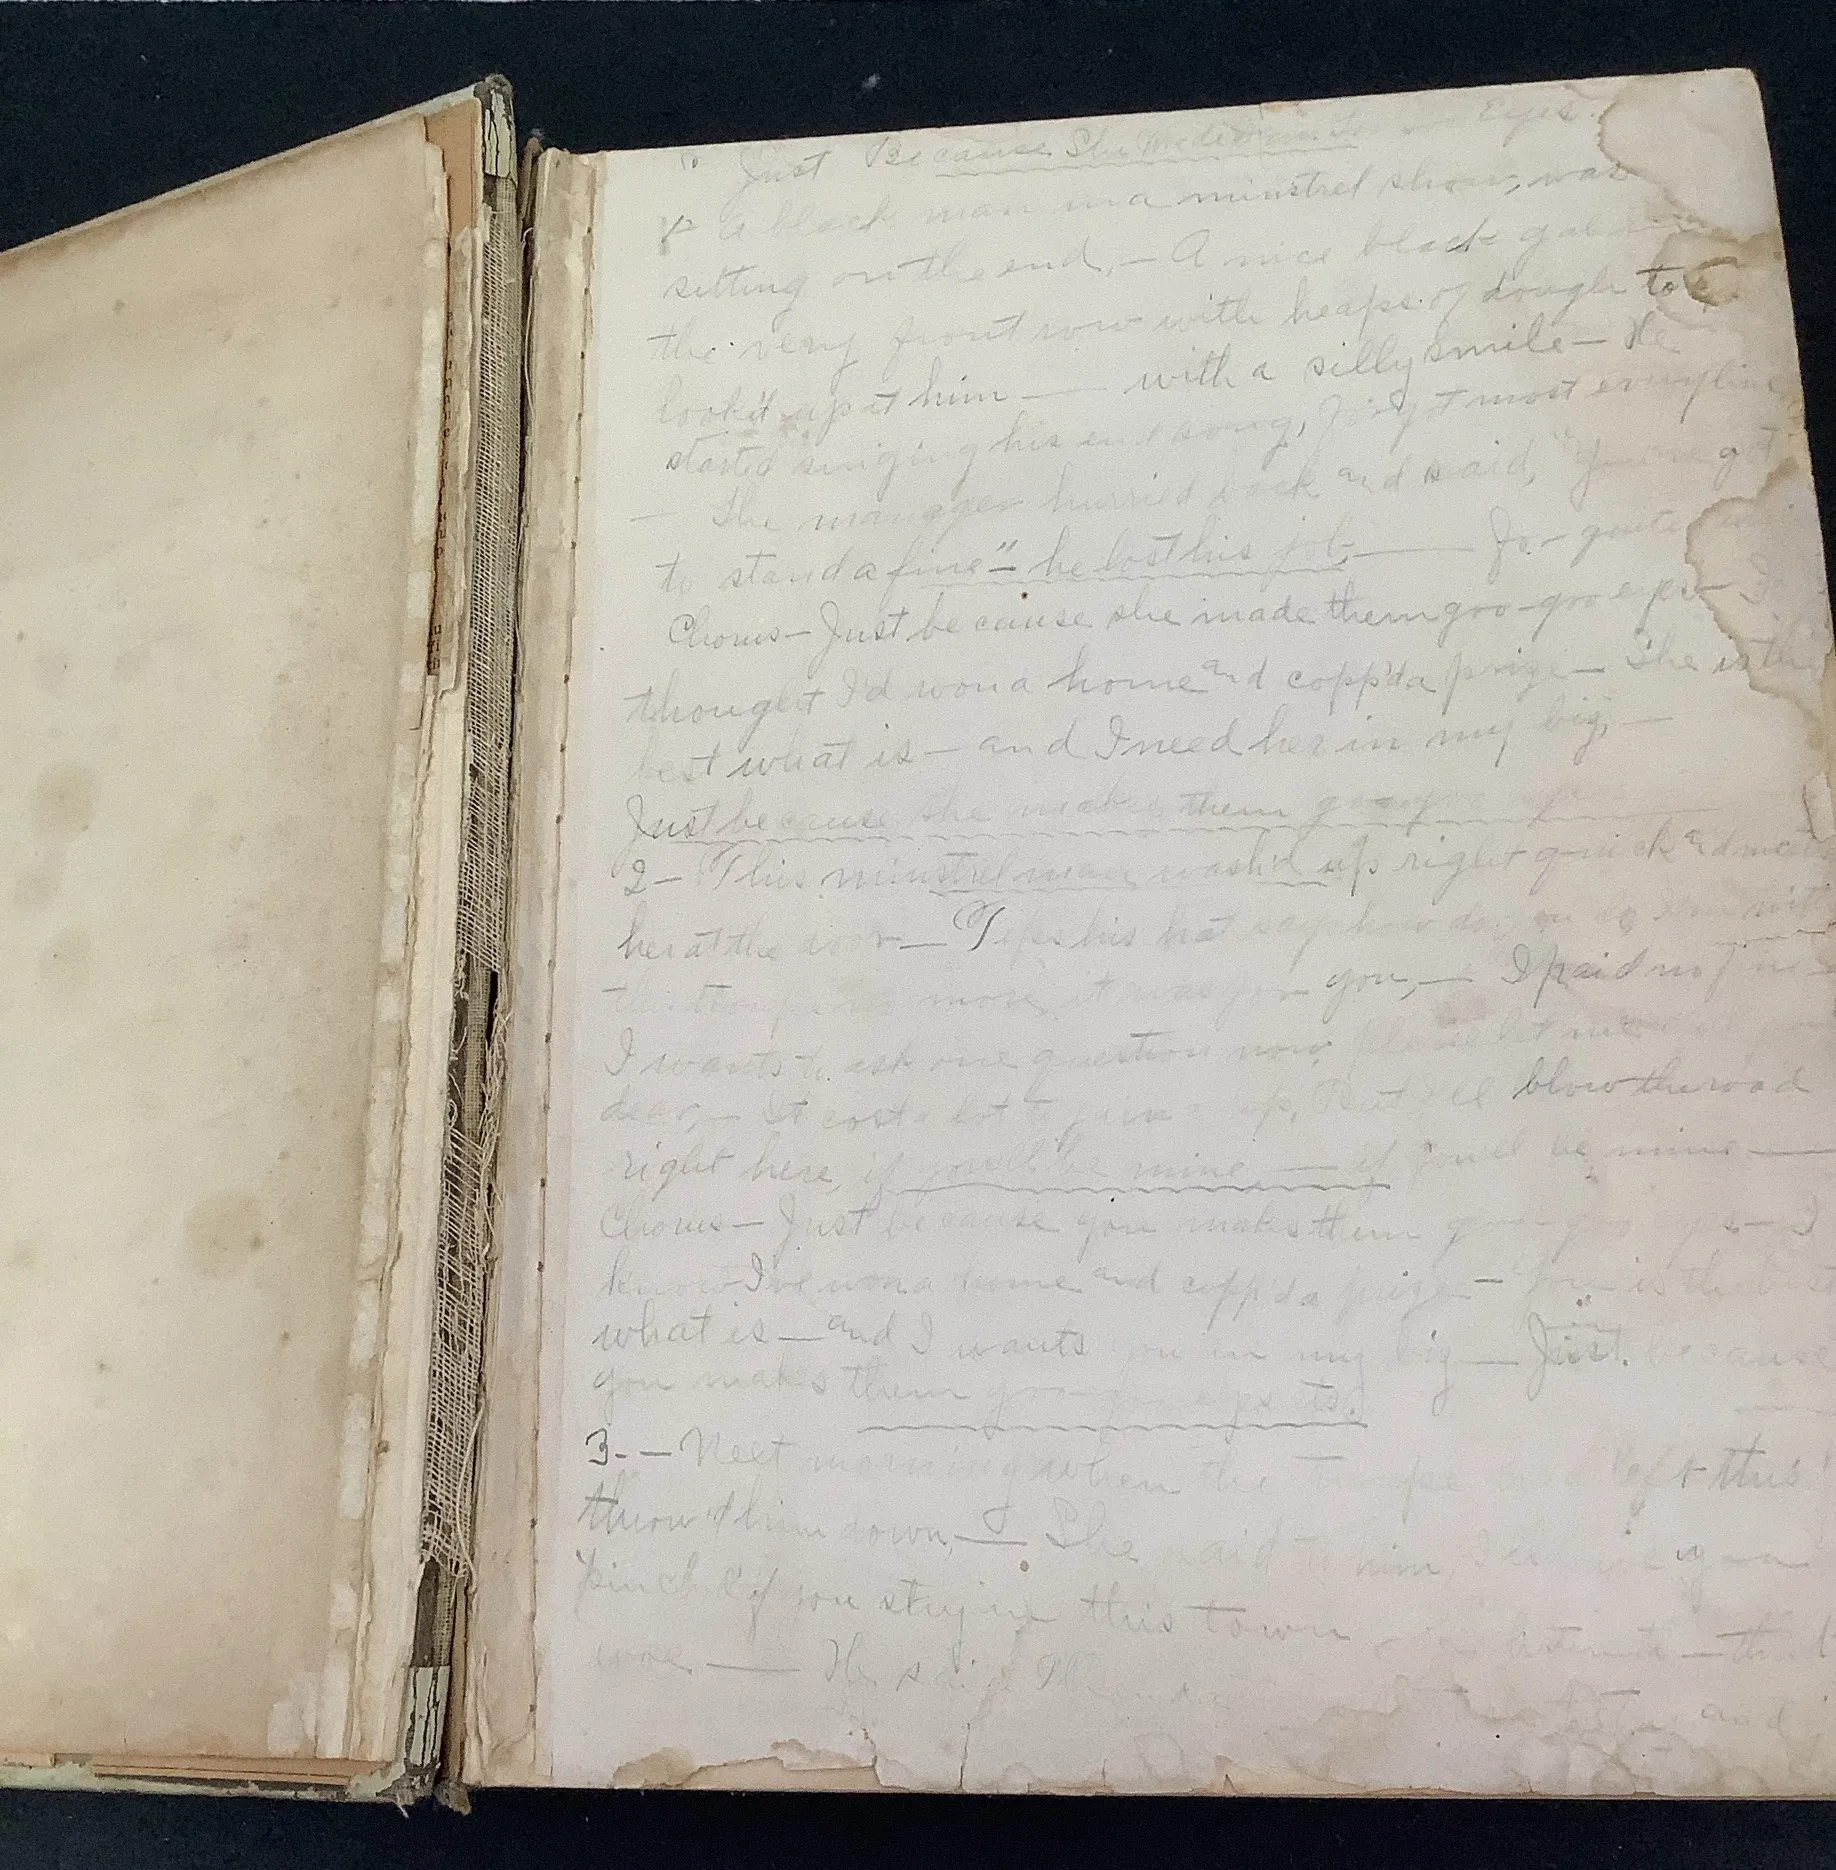 " Just Because She Made Them Eyes.
1- A black man in a minstrel show, was
sitting on the end, – A nice black gal
the very front row with heaps of dough to
look'd up at him — with a silly smile – He
started singing his end song, forgot most every line
— The manager hurried back and said, "You've got
to stand a fine" – he lost his job, — For quite
Chorus – Just because she made them goo-goo eyes – I
thought I'd won a home and copp'd a prize – She is the
best what is – and I need her in my biz, –
Just because she makes them goo goo eyes
2 – This minstrel man wash'd up right quick and meets
her at the door – Tips his hat says how do you do I'm with
the troupe no more, it was for you, – I paid no fine –
I wants to ask one question now, please let me
dear, – It costs a lot to up, But I'll blow the wad
right here, if you'll be mine — if you'll be mine —
Chorus – Just because you makes them goo-goo eyes – I
know I've won a home and copp'd a prize – You is the best
what is – and I wants you in my biz – Just because
you makes them goo-goo eyes
3. – Next morning when the troupe had left this
throw'd him down, – She said to him, I'll have you
pinched if you stay in this town
– He said
and